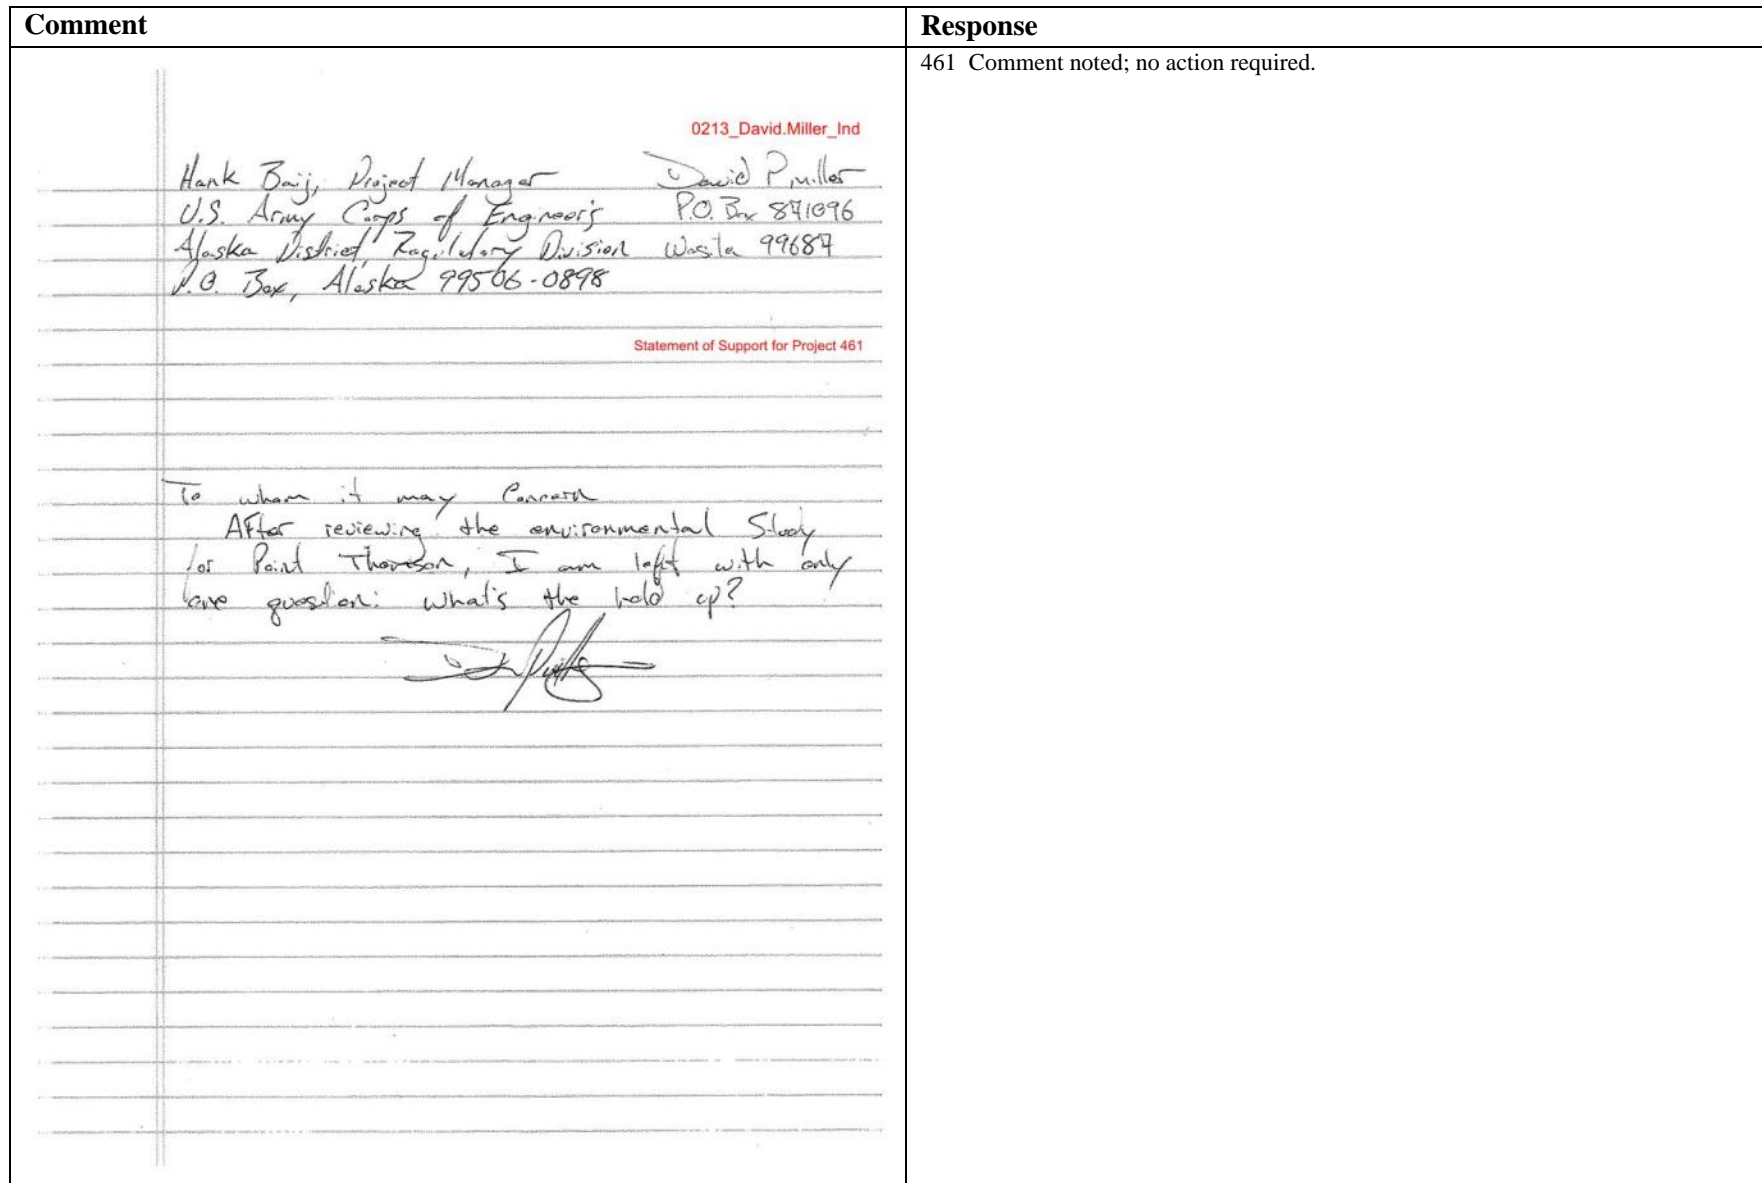 Comment
Response
461 Comment noted; no action required.
0213_David.Miller_Ind
Hank Baij, Project Manager
U.S. Army Corps of Engineer's
Alaska District, Regulatory Division
P.O. Box, Alaska 99506-0898
David P Miller
P.O. Box 871096
Wasila 99687
Statement of Support for Project 461
To whom it may Concern
After reviewing the environmental Study
for Point Thomson, I am left with only
one question: what's the hold up?